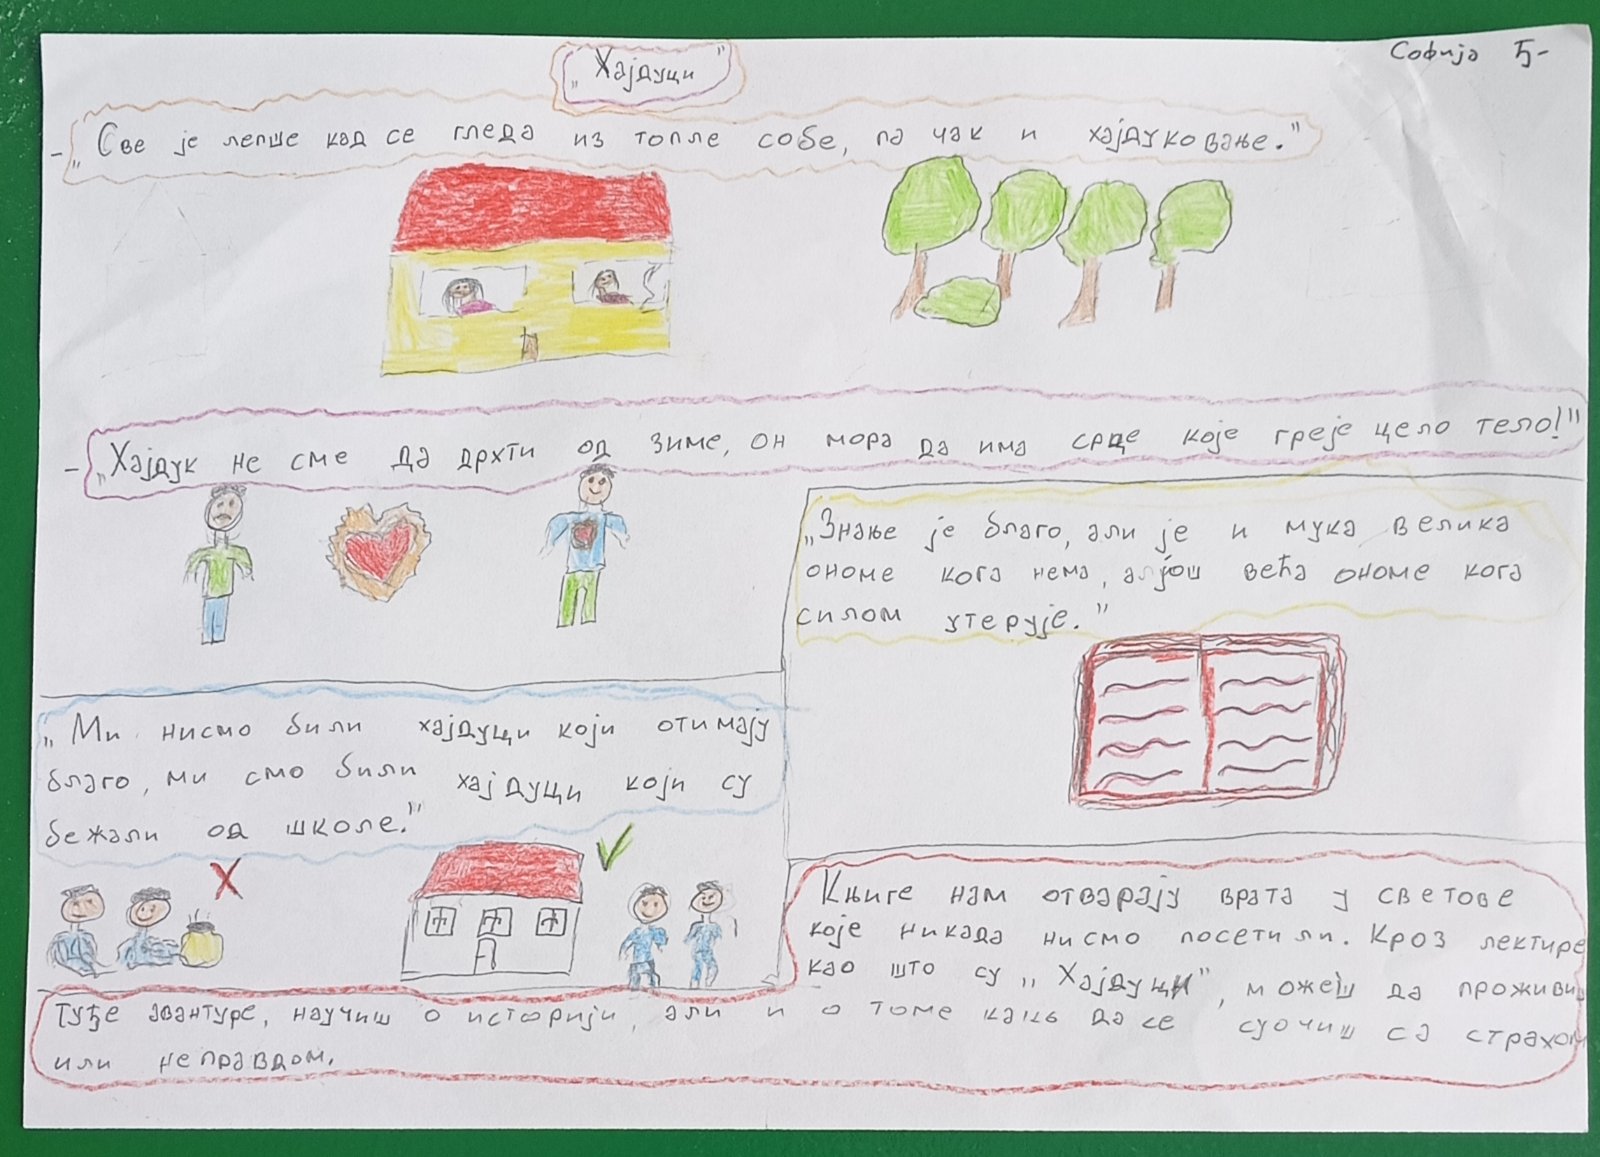 Софија Ђ-
„Хајдуци"
- „Све је лепше кад се гледа из топле собе, па чак и хајдуковање."
- „Хајдук не сме да дрхти од зиме, он мора да има срце које греје цело тело!"
„Знање је благо, али је и мука велика
ономе кога нема, а још већа ономе кога
силом утерује."
„Ми нисмо били хајдуци који отимају
благо, ми смо били хајдуци који су
бежали од школе."
X
Књиге нам отварају врата у светове
које никада нисмо посетили. Кроз лектире
као што су „Хајдуци", можеш да проживиш
туђе авантуре, научиш о историји, али и о томе како да се суочиш са страхом
или неправдом.